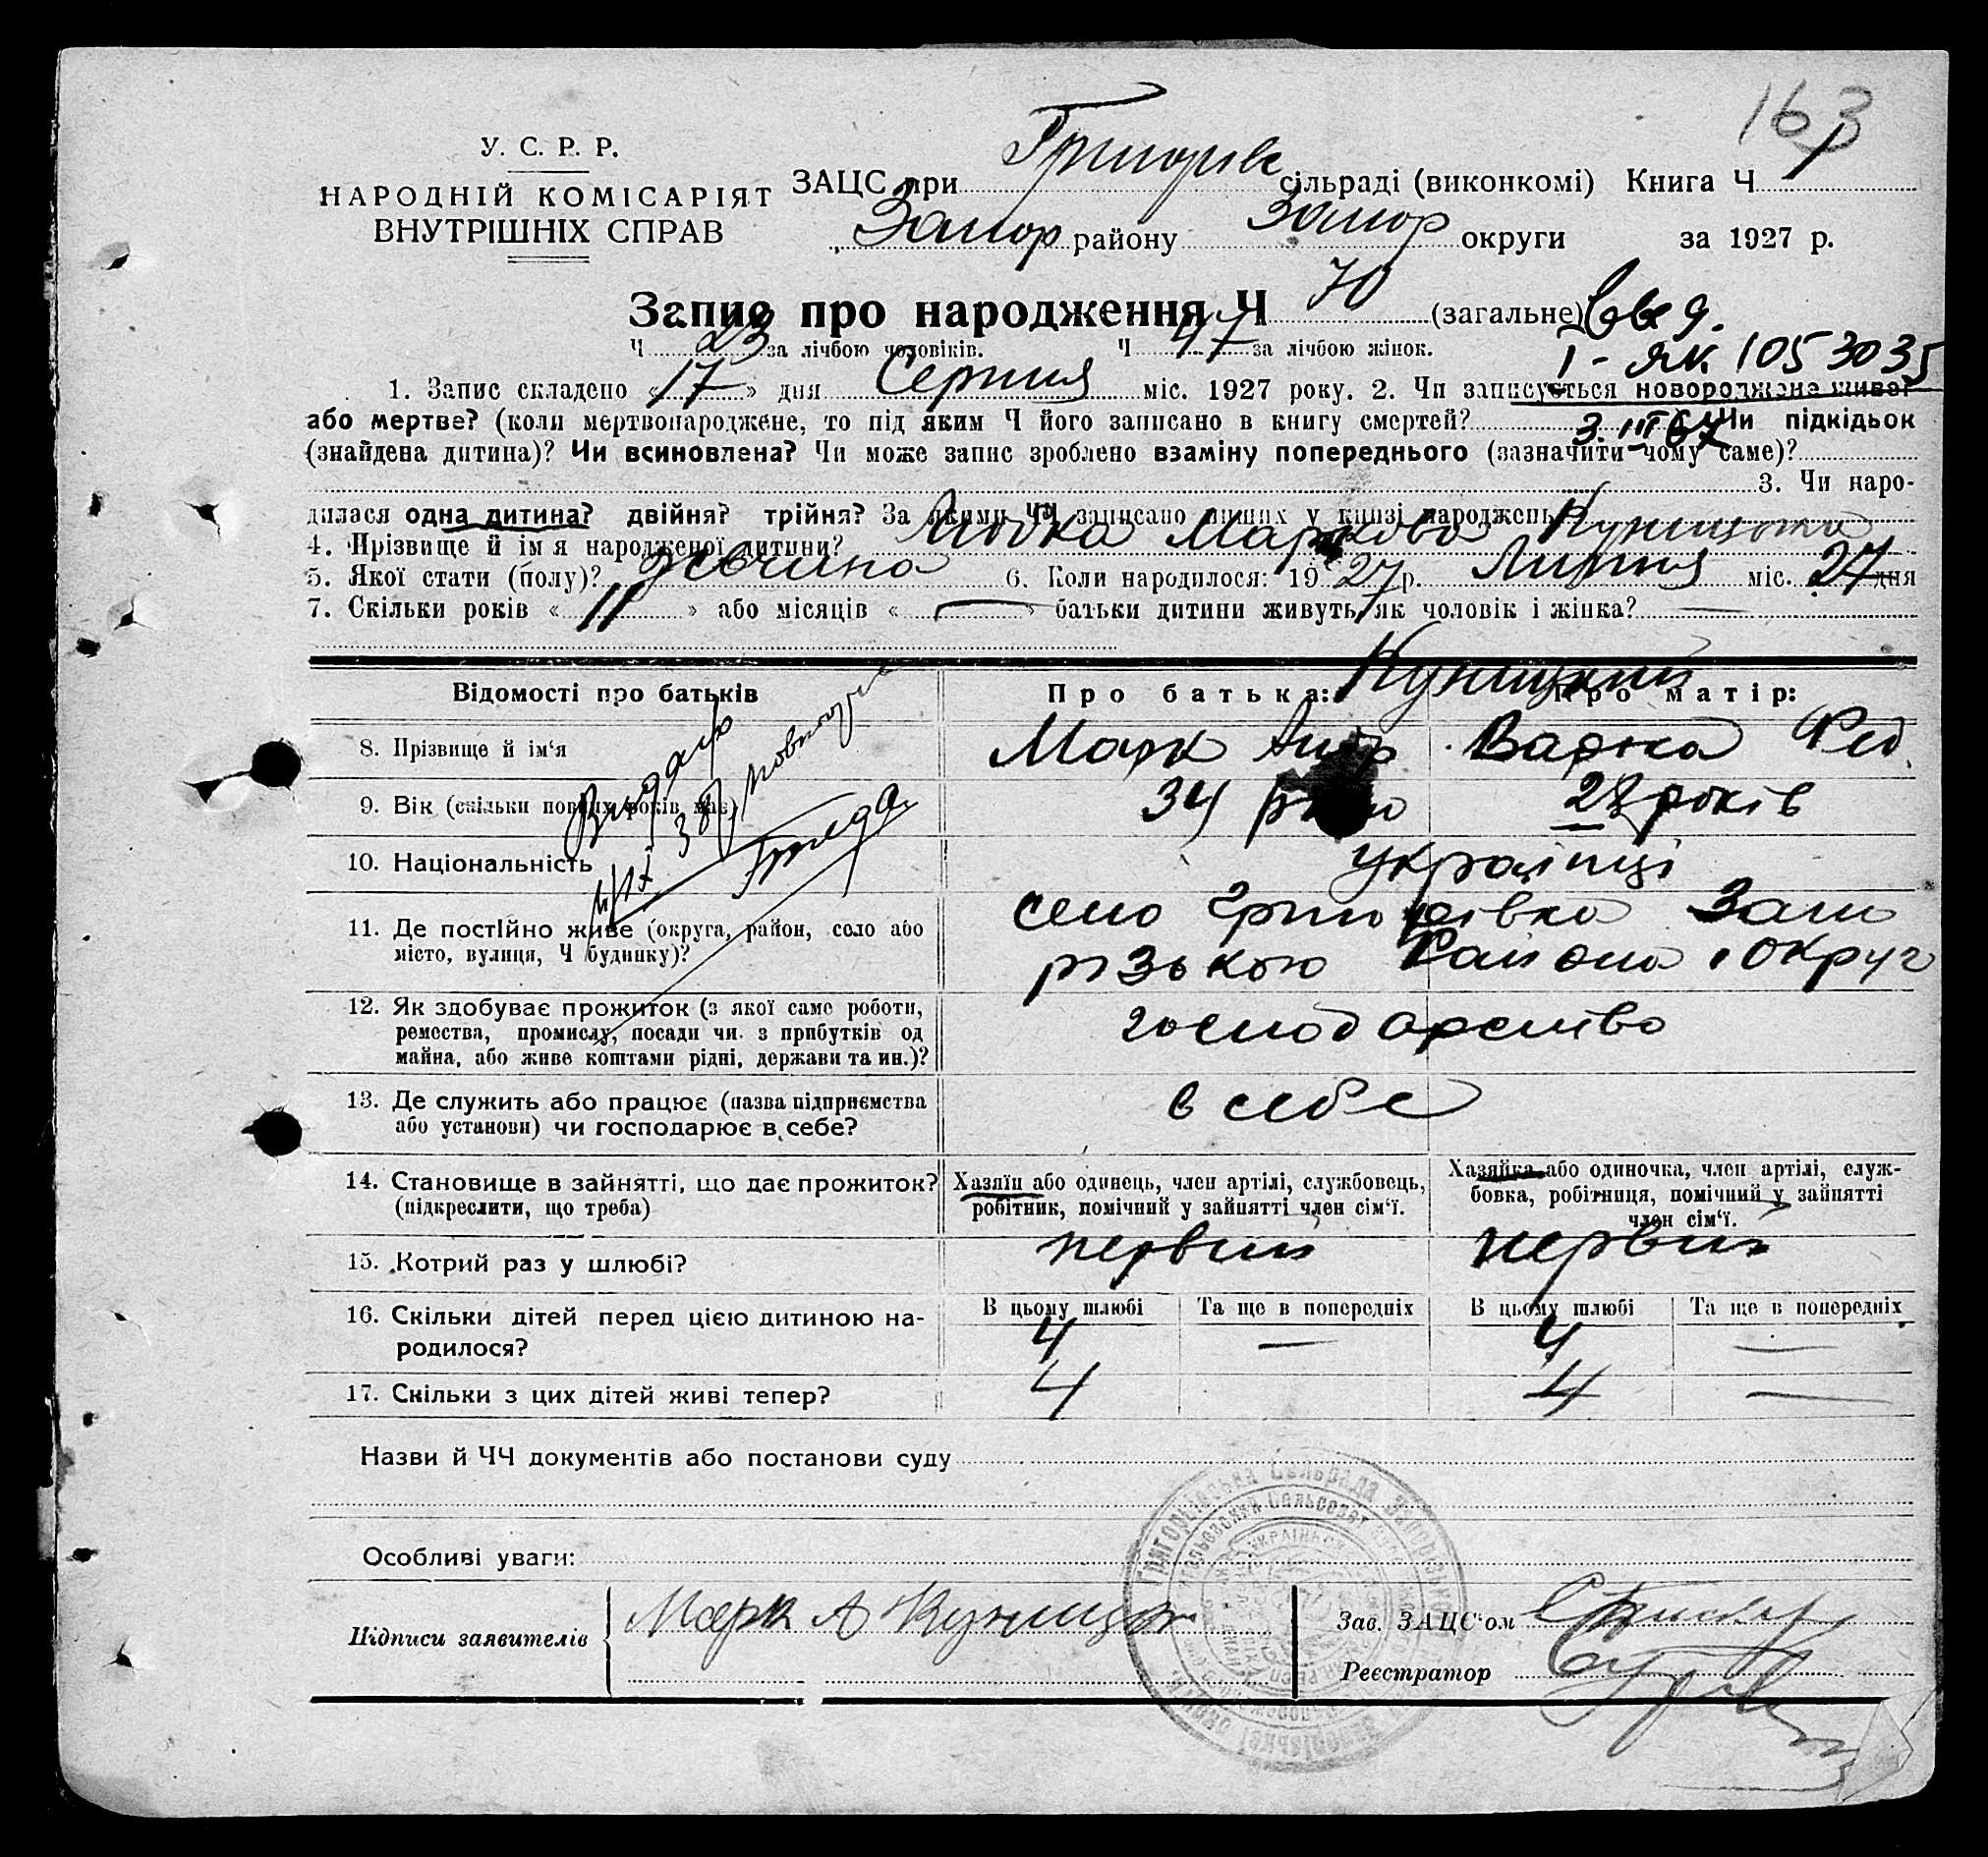 163
У. С. Р. Р.
НАРОДНІЙ КОМІСАРІЯТ
ВНУТРІШНІХ СПРАВ
ЗАЦС при Григорів сільраді (виконкомі) Книга Ч 1
Запор району Запор округи за 1927 р.
Запис про народження Ч 70 (загальне)
Ч 23 за лічбою чоловіків. Ч 47 за лічбою жінок.
I-ЯК 1053035
1. Запис складено «17» дня Серпня міс. 1927 року. 2. Чи записується новороджене живе?
або мертве? (коли мертвонароджене, то під яким Ч його записано в книгу смертей? 3.III 67 Чи підкідьок
(знайдена дитина)? Чи всиновлена? Чи може запис зроблено взаміну попереднього (зазначити чому саме)?
3. Чи наро-
дилася одна дитина? двійня? трійня? За якими ЧЧ записано инших у книзі народжень?
4. Прізвище й ім'я народженої дитини? Маркова Куницька
5. Якої стати (полу)? дівчина 6. Коли народилося: 1927 р. Липня міс. 27 дня
7. Скільки років «11» або місяців «—» батьки дитини живуть як чоловік і жінка? —
Відомості про батьків Про батька: Про матір:
Куницький
8. Прізвище й ім'я Марк Варка Фед
9. Вік (скільки повних років має) 34 роки 27 років
10. Національність українці
11. Де постійно живе (округа, район, село або
місто, вулиця, Ч будинку)?
село Григорівка Запо
різького Района і Округ
12. Як здобуває прожиток (з якої саме роботи,
ремества, промислу, посади чи з прибутків од
майна, або живе коштами рідні, держави та ин.)?
господарство
13. Де служить або працює (назва підприємства
або установи) чи господарює в себе?
в себе
14. Становище в зайнятті, що дає прожиток?
(підкреслити, що треба)
Хазяїн або одинець, член артілі, службовець,
робітник, помічний у зайнятті член сім'ї.
Хазяйка або одиночка, член артілі, служ-
бовка, робітниця, помічний у зайнятті
член сім'ї.
15. Котрий раз у шлюбі? первий первий
16. Скільки дітей перед цією дитиною на-
родилося?
В цьому шлюбі Та ще в попередніх В цьому шлюбі Та ще в попередніх
4 — 4 —
17. Скільки з цих дітей живі тепер? 4 4 —
Назви й ЧЧ документів або постанови суду
Особливі уваги:
Підписи заявителів Марк А Куницк
Зав. ЗАЦС'ом
Реєстратор